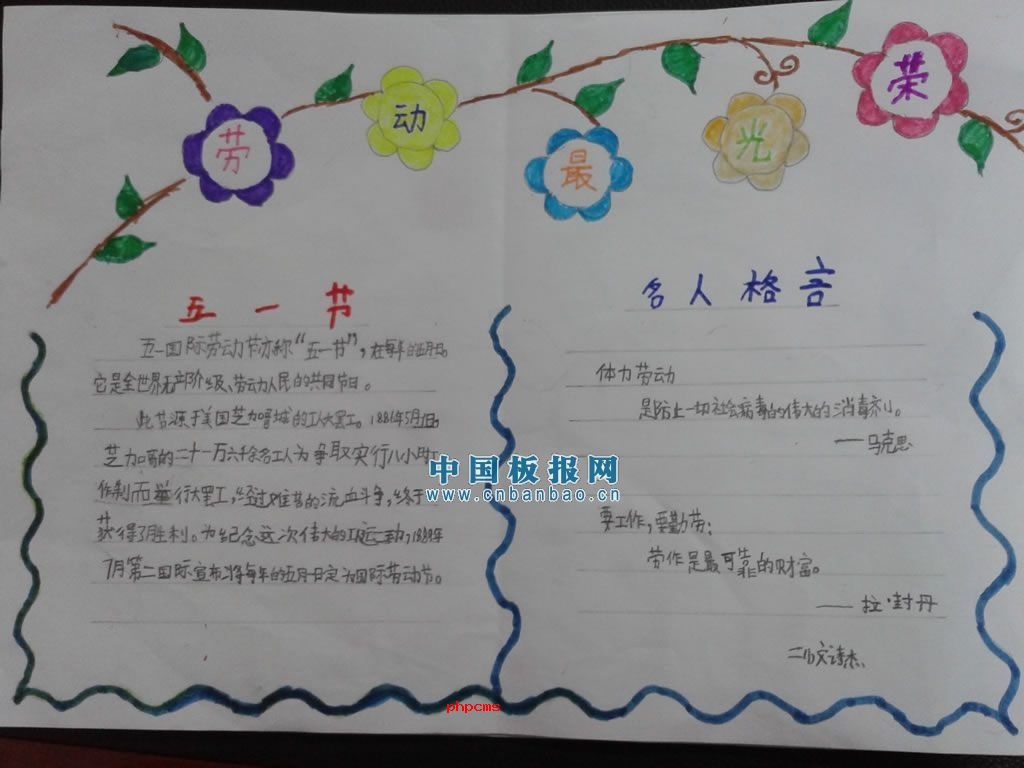 劳动最光荣
五一节
五一国际劳动节亦称“五一节”，在每年的五月一日。
它是全世界无产阶级、劳动人民的共同节日。
此节源于美国芝加哥城的工人大罢工。1886年5月1日，
芝加哥的二十一万六千余名工人为争取实行八小时工
作制而举行大罢工，经过艰苦的流血斗争，终于
获得了胜利。为纪念这次伟大的工人运动，1889年
7月第二国际宣布将每年的五月一日定为国际劳动节。
名人格言
体力劳动
是防止一切社会病毒的伟大的消毒剂。
——马克思
要工作，要勤劳：
劳作是最可靠的财富。
——拉·封丹
文诗杰
中国板报网
www.cnbanbao.cn
phpcms